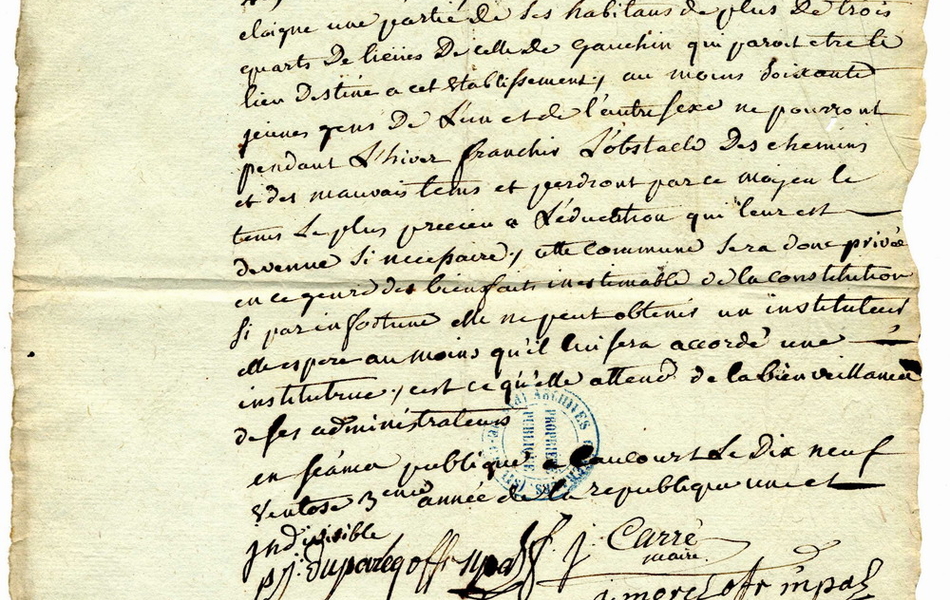 eloigne une partie de ses habitans de plus de trois
quarts de lieües de celle de gauchin qui paroit etre le
lieu destiné a cet Etablissement; au moins soixante
jeunes gens de L'un et de l'autre sexe ne pourront
pendant L'hiver franchir L'obstacle des chemins
et des mauvais tems et perdront par ce moyen le
tems Le plus precieu a L'éducation qui leur est
devenue si necessaire; cette commune sera donc privée
en ce genre des bienfaits inestimable de la constitution
si par infortune elle ne peut obtenir un instituteur
elle espere au moins qu'il lui sera accordé une
institutrice; cest ce qu'elle attend de la bienveillance
de ses administrateurs
en séance publique a Caucourt Le Dix neuf
Ventose 3eme année de la republique une et
indivisible
ARCHIVES
PROPRIÉTÉ
PUBLIQUE
j Carré
maire
offr mpal
offr mpal